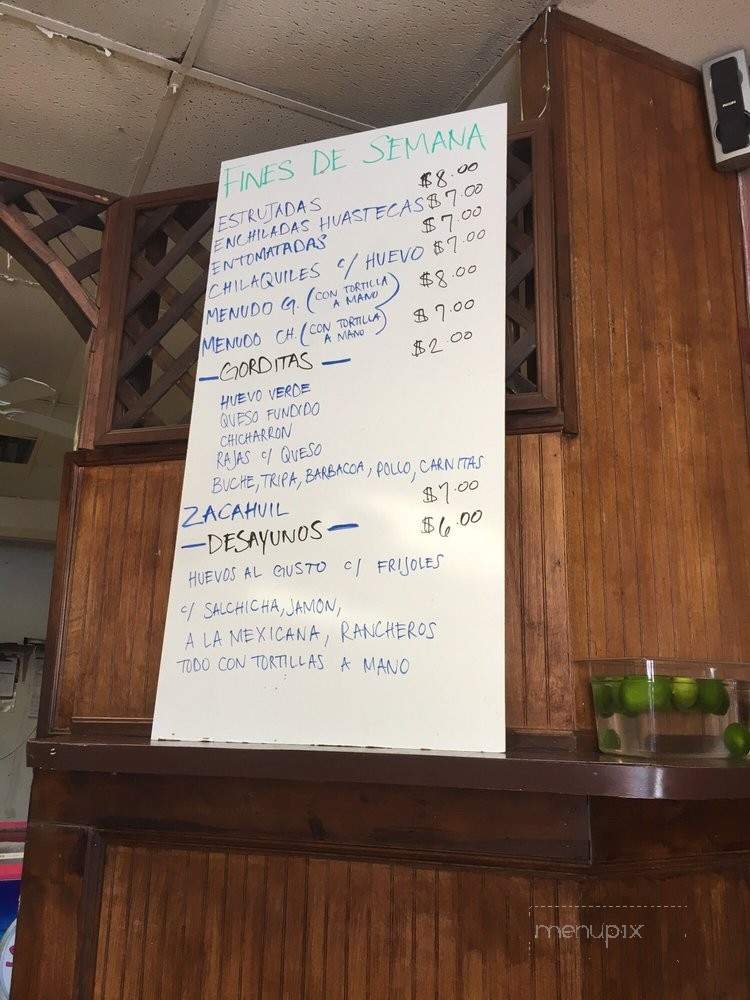 FINES DE SEMANA
ESTRUJADAS $8.00
ENCHILADAS HUASTECAS $7.00
ENTOMATADAS $7.00
CHILAQUILES c/ HUEVO $7.00
MENUDO G. (CON TORTILLA A MANO) $8.00
MENUDO CH. (CON TORTILLA A MANO) $7.00
—GORDITAS— $2.00
HUEVO VERDE
QUESO FUNDIDO
CHICHARRON
RAJAS c/ QUESO
BUCHE, TRIPA, BARBACOA, POLLO, CARNITAS
ZACAHUIL $7.00
—DESAYUNOS— $6.00
HUEVOS AL GUSTO c/ FRIJOLES
c/ SALCHICHA, JAMON,
A LA MEXICANA, RANCHEROS
TODO CON TORTILLAS A MANO
PHILIPS
menupix